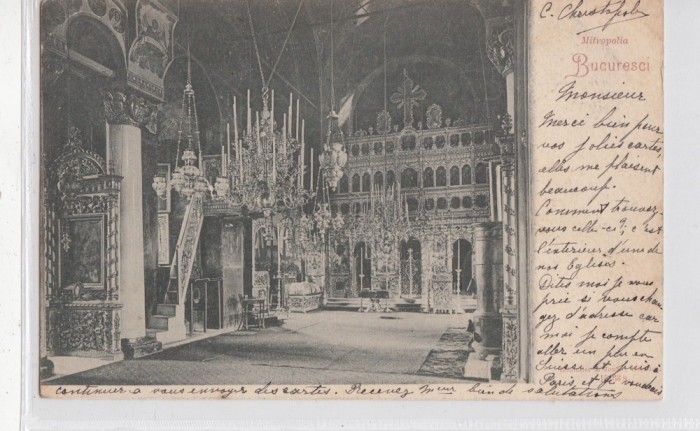 C. Christofoli
Mitropolia
Bucuresci
Monsieur
Merci bien pour
vos jolies cartes,
alles me plaisent
beaucoup.
Comment trouvez
vous celle-ci?, c'est
l'exterieur d'une de
nos Eglises.
Dites moi je vous
prie si vous chan
gez d'adresse car
moi je compte
aller un peu en
Suisse et puis à
Paris, et je voudrais
continuer a vous envoyer des cartes. Recevez Mr bien de salutations